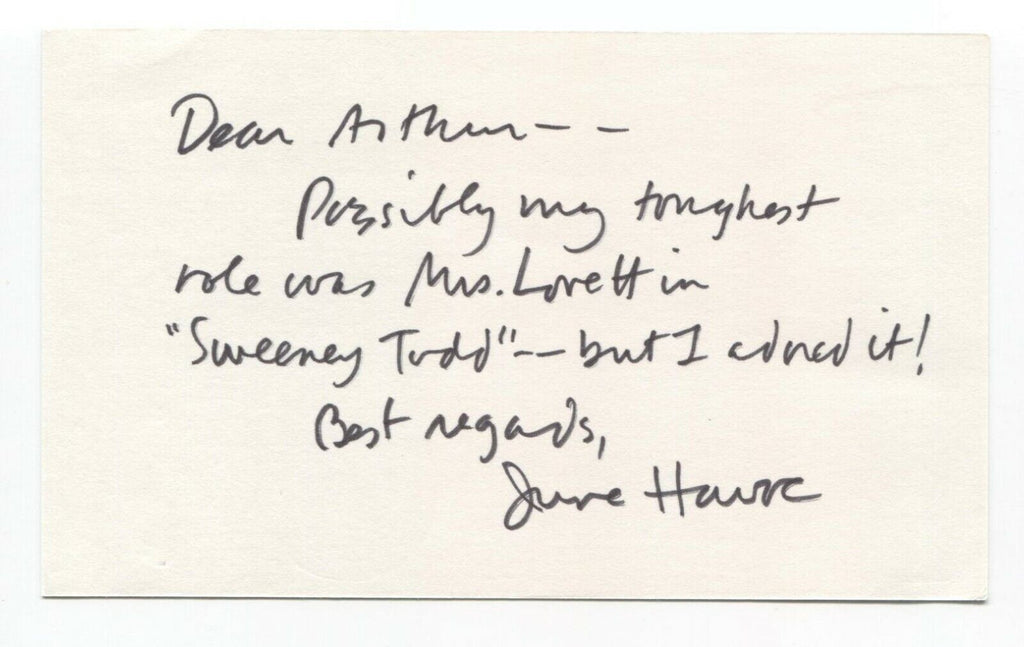 Dear Arthur--
Possibly my toughest
role was Mrs. Lovett in
"Sweeney Todd"--but I adored it!
Best regards,
June Havoc